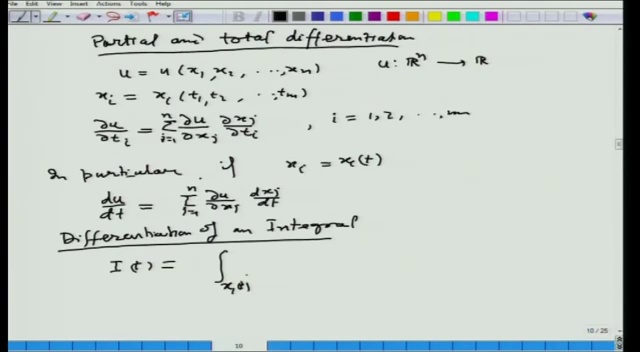 File Edit View Insert Actions Tools Help
Partial and total differentiation
u = u(x₁, x₂, ..., xₙ)    u: ℝⁿ ⟶ ℝ
xᵢ = xᵢ(t₁, t₂, ..., tₘ)
∂u/∂tᵢ = Σⱼ₌₁ⁿ ∂u/∂xⱼ ∂xⱼ/∂tᵢ , i = 1, 2, ..., m
In particular, if xᵢ = xᵢ(t)
du/dt = Σⱼ₌₁ⁿ ∂u/∂xⱼ dxⱼ/dt
Differentiation of an Integral
I(t) = ∫_{x₁(t)}
10 / 25
10